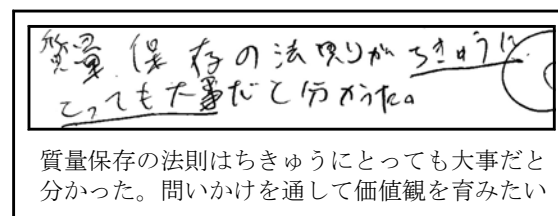 質量保存の法則りがちきゅうに
とっても大事だと分かった。
質量保存の法則はちきゅうにとっても大事だと
分かった。問いかけを通して価値観を育みたい